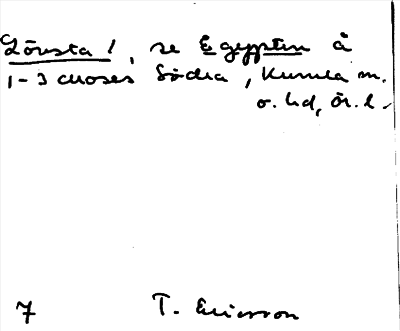 Lövsta 1, se Egypten å
1-3 Moses Södra, Kumla sn.
o. hd, Ör. l.
7 T. Ericsson